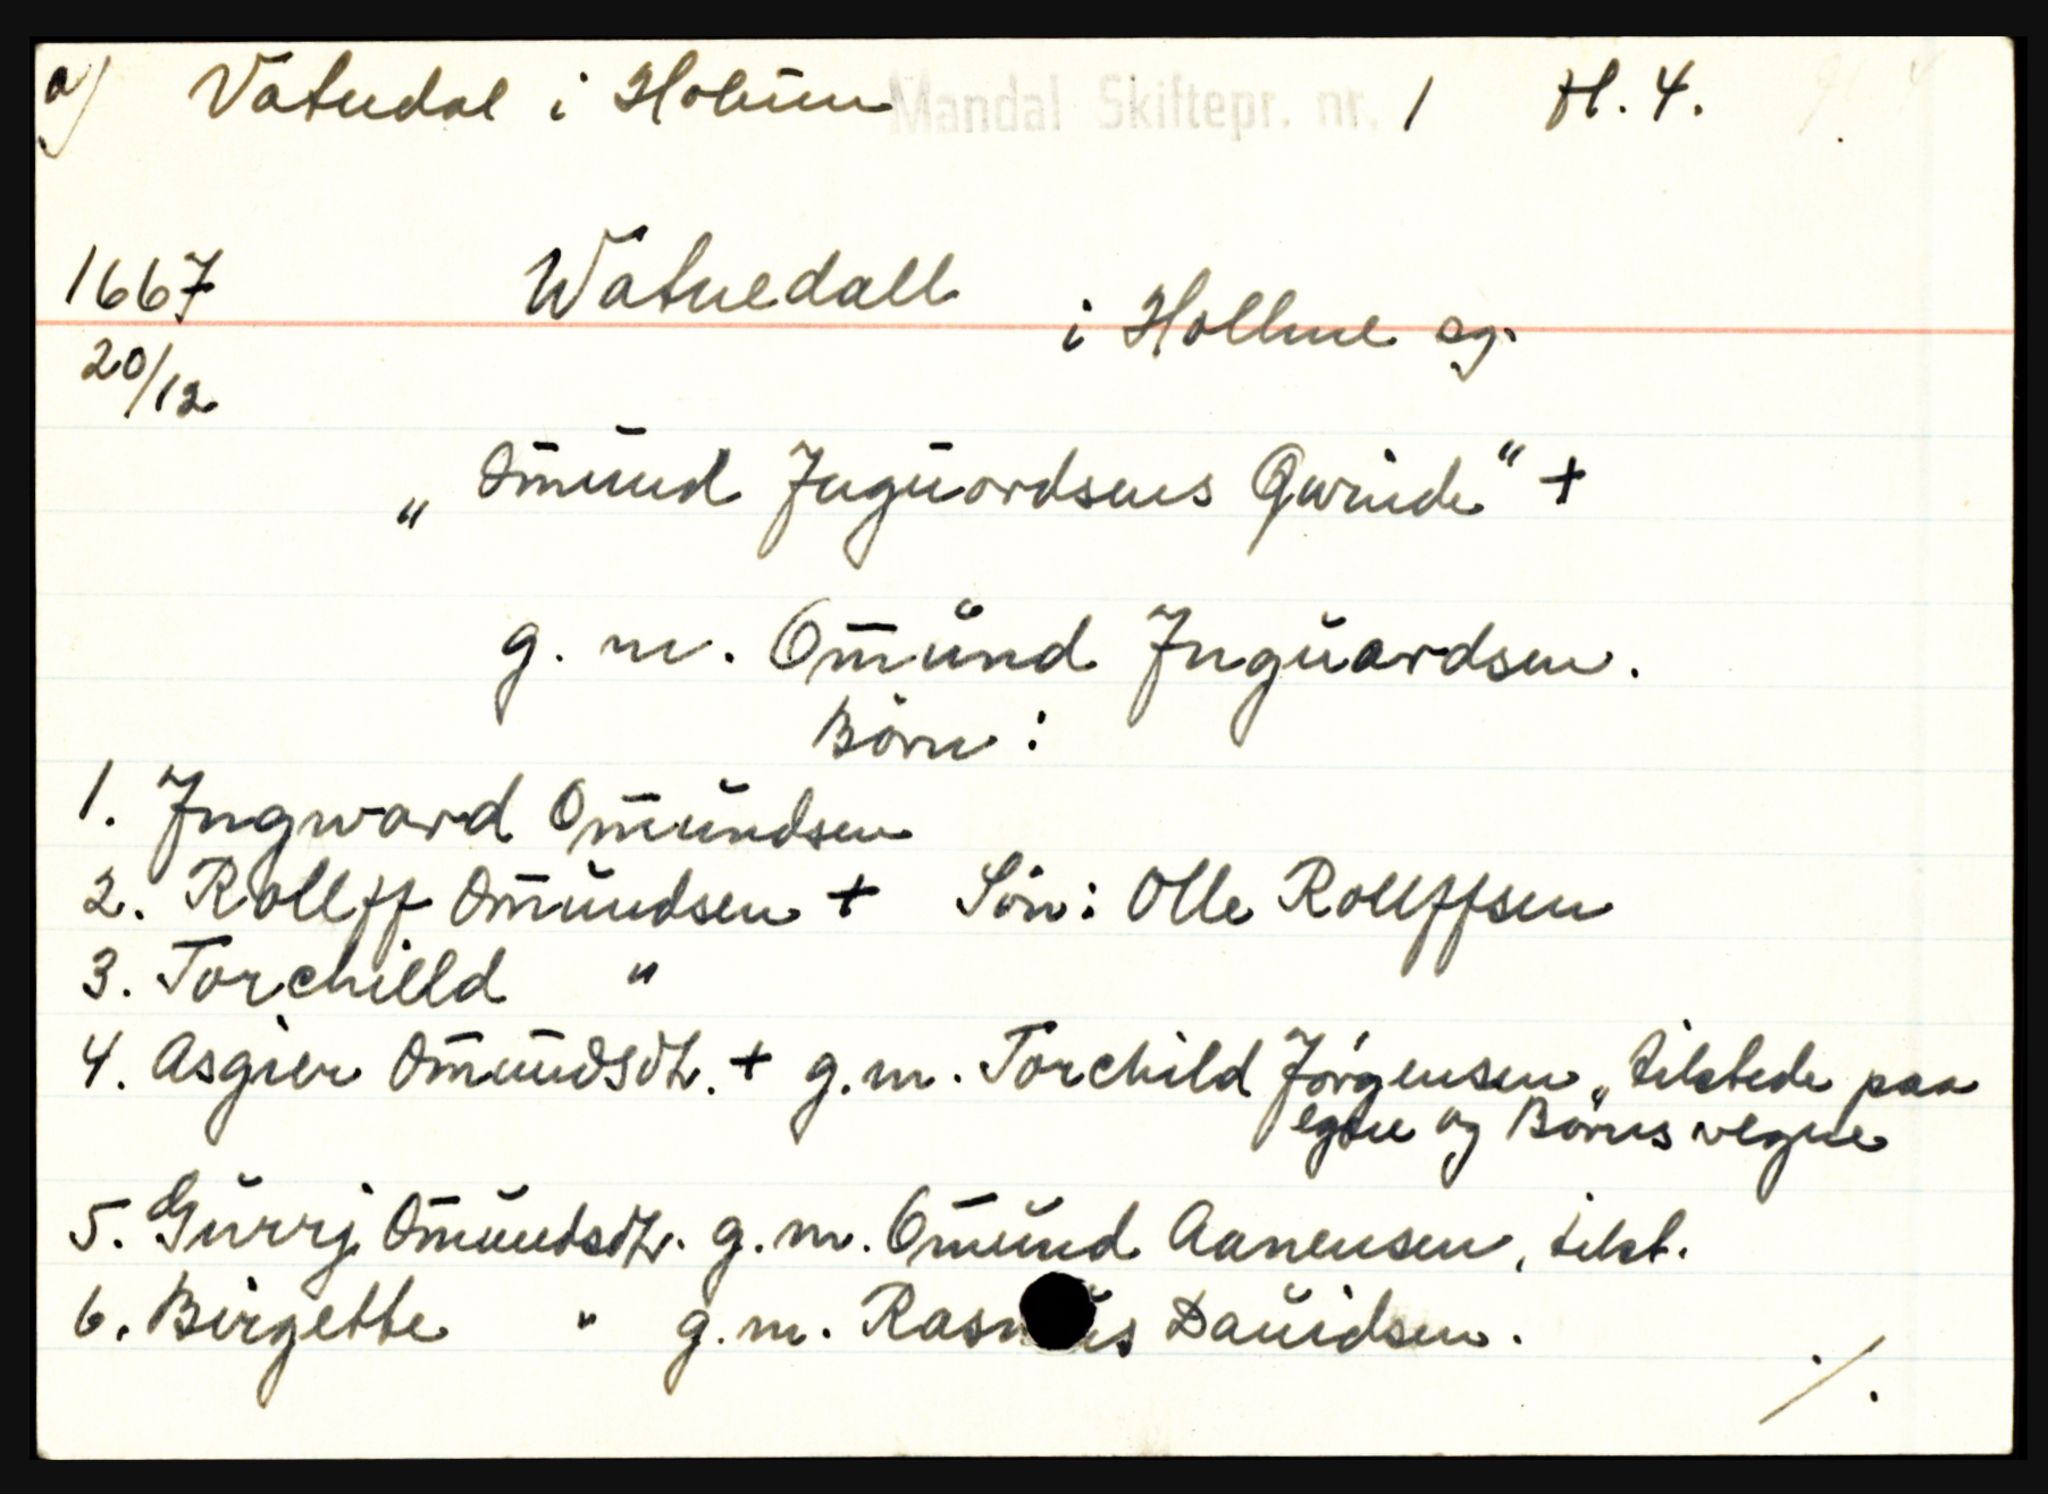 a) Vatnedal i Holum Mandal Skiftepr. nr. 1 fl. 4.
1667 Watnedall i Hollme sg.
20/12
„Omund Inguordsens Qwinde“ +
g. m. Omund Inguardsen.
Börn:
1. Ingward Omundsen
2. Rollff Omundsen + Sön: Olle Rollffsen
3. Torchilld "
4. Asgier Omundsdtr. + g.m. Torchild Jörgensen, „tilstede paa
egne og Börns vegne
5. Gurrj Omundsdtr. g.m. Omund Aanensen, tilst.
6. Birgette " g.m. Rasmus Dauidsen.
./.